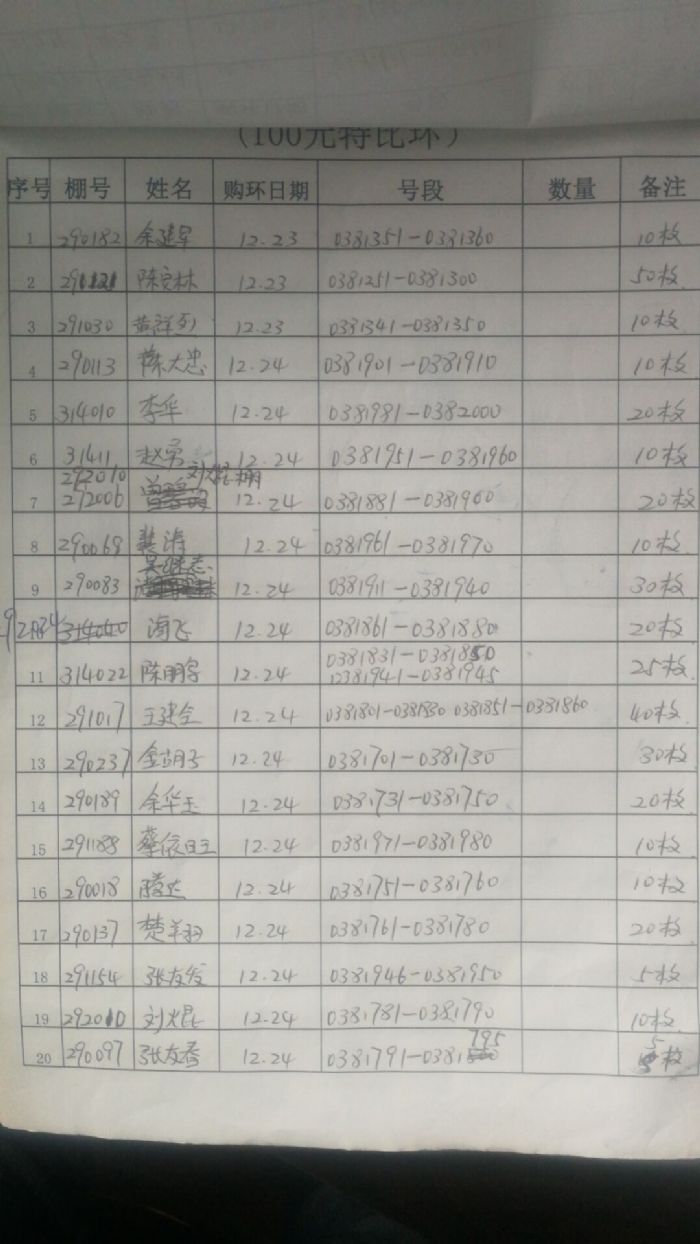 (100元特比环)
序号 棚号 姓名 购环日期 号段 数量 备注
1 290182 余建军 12.23 0381351-0381360 10枚
2 12.23 0381251-0381300 50枚
3 291030 黄祥烈 12.23 0381341-0381350 10枚
4 290113 陈大忠 12.24 0381901-0381910 10枚
5 314010 李华 12.24 0381981-0382000 20枚
6 31411 赵勇 12.24 0381951-0381960 10枚
292010 刘焜棚
7 292006 12.24 0381881-0381900 20枚
8 290069 龚涛 12.24 0381961-0381970 10枚
吴继志
9 290083 12.24 0381911-0381940 30枚
314040 陶飞 12.24 0381861-0381880 20枚
0381831-0381850
11 314022 陈朋宇 12.24 0381941-0381945 25枚
12 291017 王建全 12.24 0381801-0381830 0381851-0381860 40枚
13 290237 12.24 0381701-0381730 30枚
14 290189 余华玉 12.24 0381731-0381750 20枚
15 291188 12.24 0381971-0381980 10枚
16 290018 腾达 12.24 0381751-0381760 10枚
17 290137 楚羊羽 12.24 0381761-0381780 20枚
18 291154 张友发 12.24 0381946-0381950 5枚
19 292010 刘焜 12.24 0381781-0381790 10枚
795
20 290097 张友春 12.24 0381791-0381 5枚